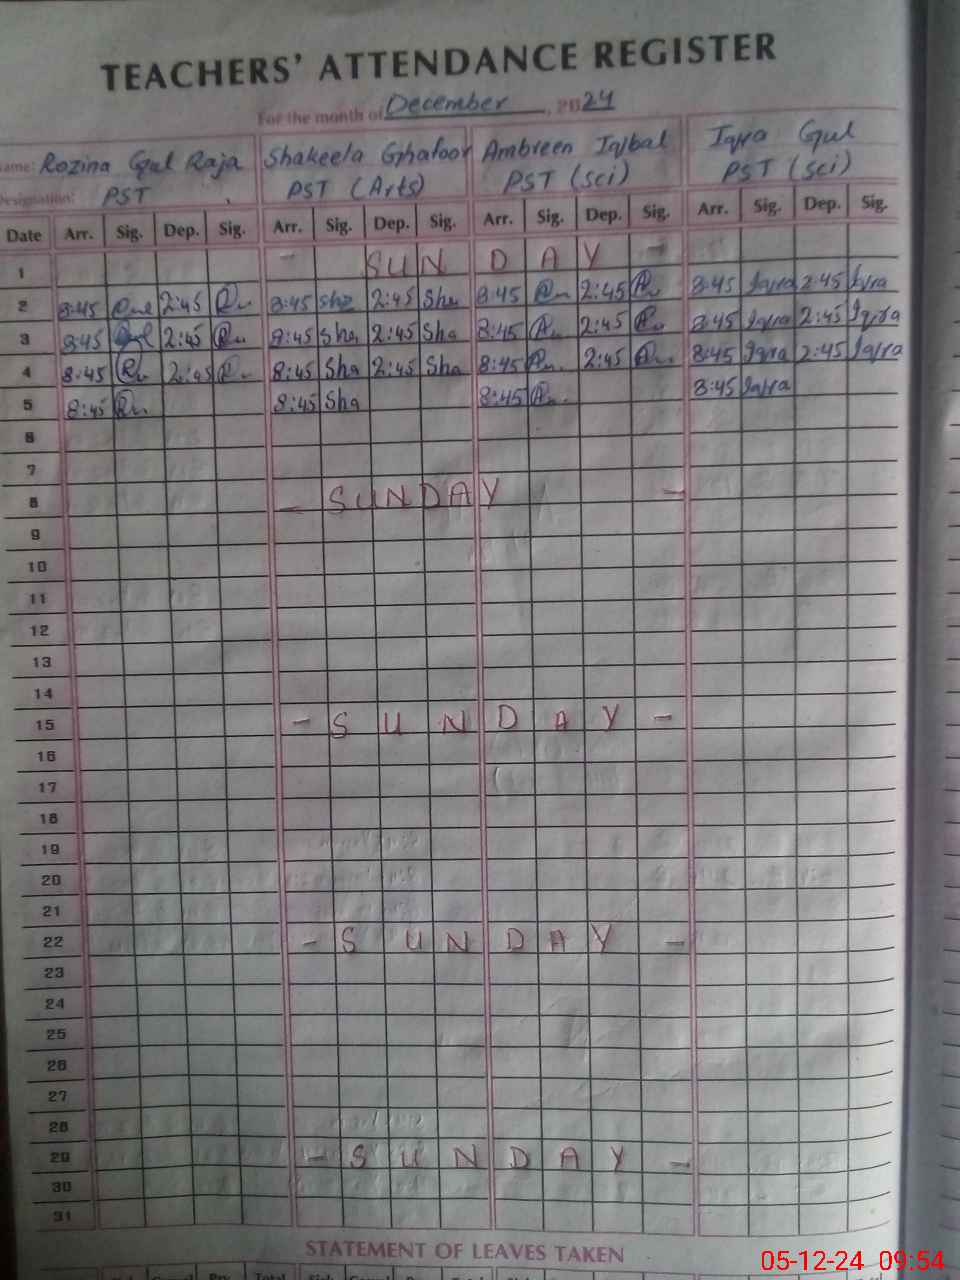 TEACHERS' ATTENDANCE REGISTER
For the month of December, 2024
Name: Rozina Gul Raja Shakeela Ghafoor Ambreen Iqbal Iqra Gul
Designation: PST PST (Arts) PST (sci) PST (sci)
Date Arr. Sig. Dep. Sig. Arr. Sig. Dep. Sig. Arr. Sig. Dep. Sig. Arr. Sig. Dep. Sig.
1 - SUNDAY -
2 8:45 2:45 8:45 Sha 2:45 Sha 8:45 2:45 8:45 Iqra 2:45 Iqra
3 8:45 2:45 8:45 Sha 2:45 Sha 8:45 2:45 8:45 Iqra 2:45 Iqra
4 8:45 2:45 8:45 Sha 2:45 Sha 8:45 2:45 8:45 Iqra 2:45 Iqra
5 8:45 8:45 Sha 8:45 8:45 Iqra
6
7
8 - SUNDAY -
9
10
11
12
13
14
15 - SUNDAY -
16
17
18
19
20
21
22 - SUNDAY -
23
24
25
26
27
28
29 - SUNDAY -
30
31
STATEMENT OF LEAVES TAKEN
05-12-24 09:54